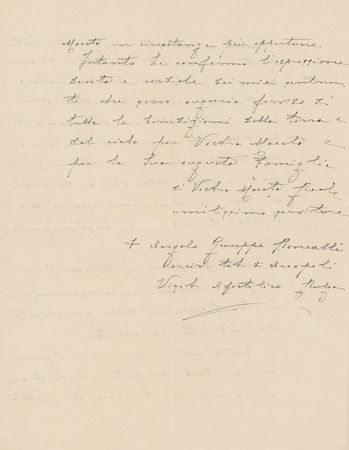 Maestà in circostanze più opportune.
Intanto Le confermo l'espressione
devota e cordiale dei miei sentimen
ti che sono augurio fervido di
tutte le benedizioni della terra e
del cielo per Vostra Maestà e
per la Sua augusta Famiglia
di Vostra Maestà
umilissimo servitore
+ Angelo Giuseppe Roncalli
Arciv. tit. di Areopoli
Visit. Apostolico